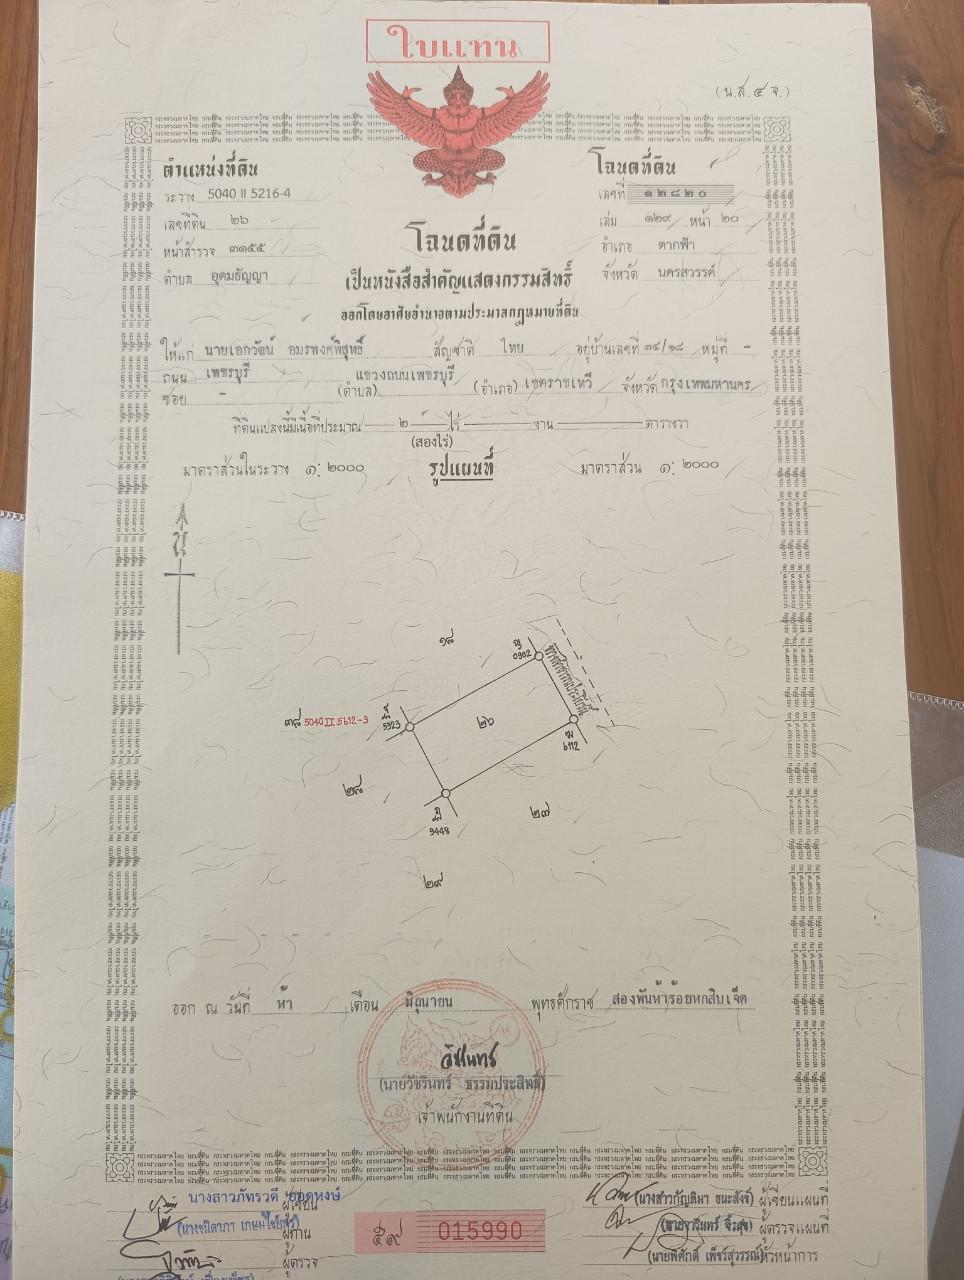 ใบแทน
(น.ส.๔ จ.)
ตำแหน่งที่ดิน
ระวาง 5040 II 5216-4
เลขที่ดิน ๒๖
หน้าสำรวจ ๓๑๕๕
ตำบล อุดมธัญญา
โฉนดที่ดิน
เลขที่ ๑๒๘๒๐
เล่ม ๑๒๙ หน้า ๒๐
อำเภอ ตากฟ้า
จังหวัด นครสวรรค์
โฉนดที่ดิน
เป็นหนังสือสำคัญแสดงกรรมสิทธิ์
ออกโดยอาศัยอำนาจตามประมวลกฎหมายที่ดิน
ให้แก่ นายเอกวัฒน์ อมรพงศ์พิสุทธิ์ สัญชาติ ไทย อยู่บ้านเลขที่ ๓๔/๑๘ หมู่ที่ -
ถนน เพชรบุรี แขวงถนนเพชรบุรี (ตำบล) (อำเภอ) เขตราชเทวี จังหวัด กรุงเทพมหานคร
ซอย -
ที่ดินแปลงนี้มีเนื้อที่ประมาณ ๒ ไร่ งาน ตารางวา
(สองไร่)
มาตราส่วนในระวาง ๑: ๒๐๐๐ รูปแผนที่ มาตราส่วน ๑: ๒๐๐๐
น
๑๘
0902
ทางสาธารณประโยชน์
๓๘ 5040 II 5612-3
5323
๒๖
6112
๒๘
9448
๒๗
๒๙
ออก ณ วันที่ ห้า เดือน มิถุนายน พุทธศักราช สองพันห้าร้อยหกสิบเจ็ด
(นายวัชรินทร์ ธรรมประสิทธิ์)
เจ้าพนักงานที่ดิน
นางสาวภัทรวดี ยอดหงษ์ ผู้เขียน
ผู้ทาน
ผู้ตรวจ
๕๙ 015990
ผู้เขียนแผนที่
ผู้ตรวจแผนที่
(นายพิศักดิ์ เพ็ชร์สุวรรณ) หัวหน้าการ